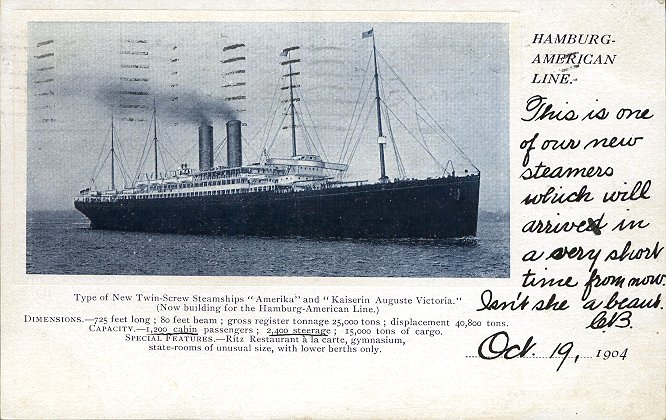 HAMBURG-
AMERICAN
LINE.
This is one
of our new
steamers
which will
arrive in
a very short
time from now.
Isn't she a beaut.
C.B.
Oct. 19, 1904
Type of New Twin-Screw Steamships "Amerika" and "Kaiserin Auguste Victoria."
(Now building for the Hamburg-American Line.)
DIMENSIONS.—725 feet long ; 80 feet beam ; gross register tonnage 25,000 tons ; displacement 40,800 tons.
CAPACITY.—1,200 cabin passengers ; 2,400 steerage ; 15,000 tons of cargo.
SPECIAL FEATURES.—Ritz Restaurant à la carte, gymnasium,
state-rooms of unusual size, with lower berths only.